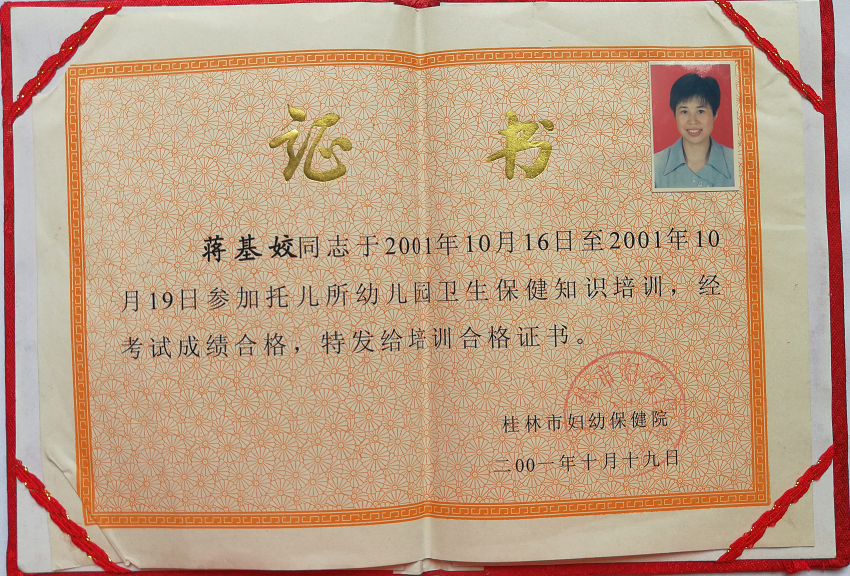 证书
蒋基姣同志于2001年10月16日至2001年10
月19日参加托儿所幼儿园卫生保健知识培训，经
考试成绩合格，特发给培训合格证书。
桂林市妇幼保健院
二00一年十月十九日